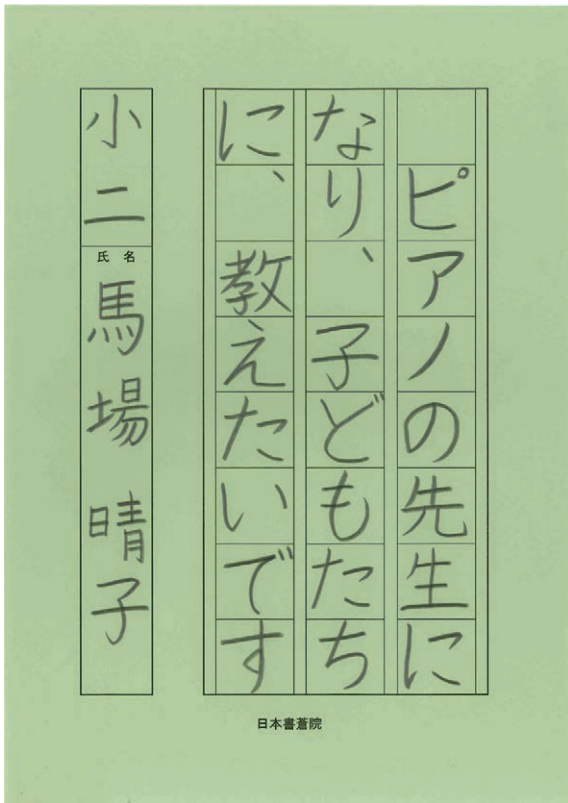 ピアノの先生に
なり、子どもたち
に、教えたいです
小二
氏名
馬場 晴子
日本書蒼院